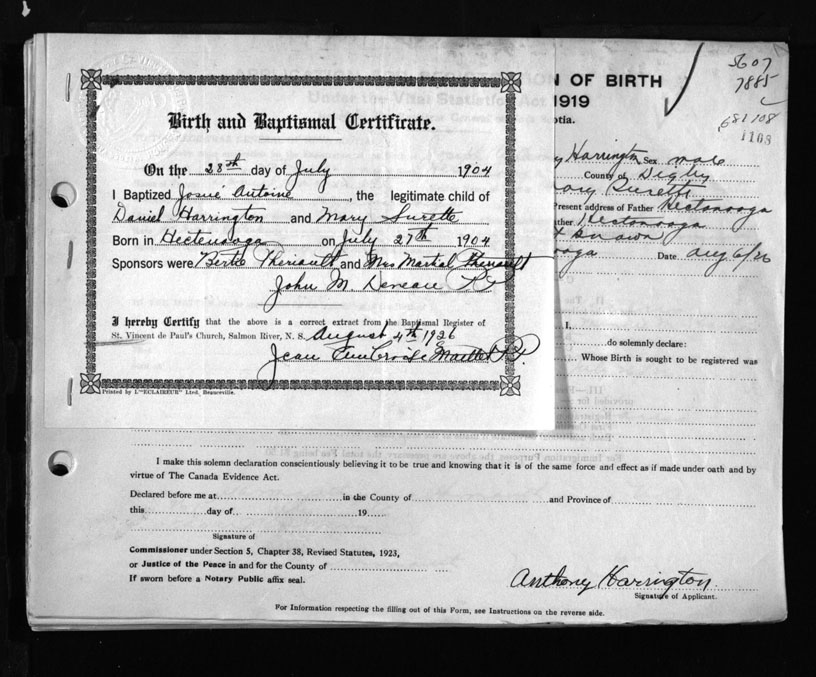 Birth and Baptismal Certificate.
On the 28th day of July 1904
I Baptized Josué Antoine, the legitimate child of
Daniel Harrington and Mary Surette
Born in Hectenooga on July 27th 1904
Sponsors were Bertie Theriault and Mrs Martial Theriault
John M. Deneau
I hereby Certify that the above is a correct extract from the Baptismal Register of
St. Vincent de Paul's Church, Salmon River, N. S. August 4th 1926
Jean
Printed by L"ECLAIREUR" Ltd, Beauceville.
N OF BIRTH
1919
otia.
5607
7885
681108
1108
y Harrington Sex male
County of Digby
ary Surette
Present address of Father Hectanooga
ather Hectanooga
known
ooga Date Aug 6/26
I,
do solemnly declare:
Whose Birth is sought to be registered was
I make this solemn declaration conscientiously believing it to be true and knowing that it is of the same force and effect as if made under oath and by
virtue of The Canada Evidence Act.
Declared before me at in the County of and Province of
this day of 19
Signature of
Commissioner under Section 5, Chapter 38, Revised Statutes, 1923,
or Justice of the Peace in and for the County of
If sworn before a Notary Public affix seal.
Anthony Harrington.
Signature of Applicant.
For Information respecting the filling out of this Form, see Instructions on the reverse side.